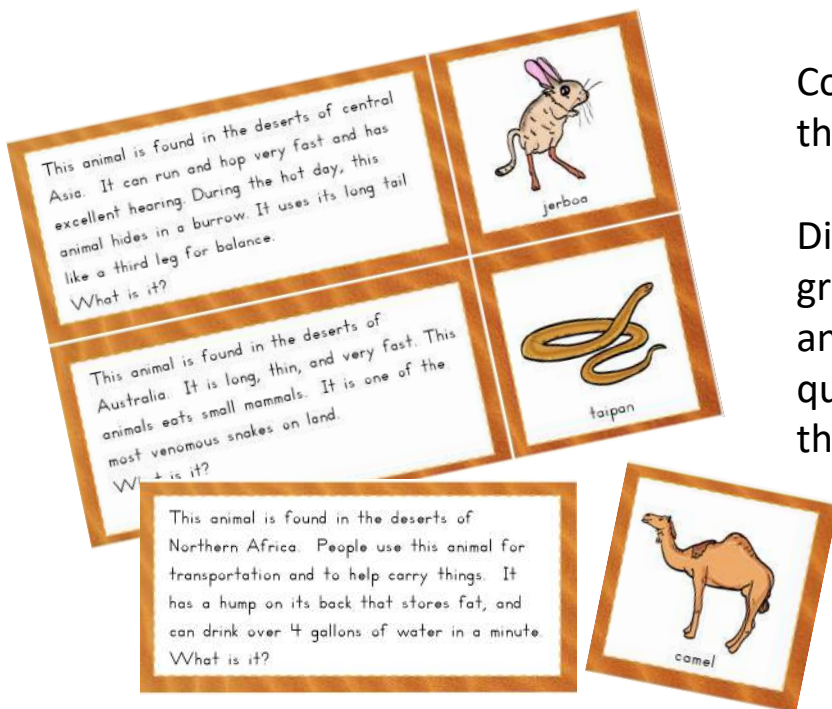 This animal is found in the deserts of central
Asia. It can run and hop very fast and has
excellent hearing. During the hot day, this
animal hides in a burrow. It uses its long tail
like a third leg for balance.
What is it?
jerboa
This animal is found in the deserts of
Australia. It is long, thin, and very fast. This
animals eats small mammals. It is one of the
most venomous snakes on land.
What is it?
taipan
This animal is found in the deserts of
Northern Africa. People use this animal for
transportation and to help carry things. It
has a hump on its back that stores fat, and
can drink over 4 gallons of water in a minute.
What is it?
camel
Co
th
Di
gr
an
qu
th